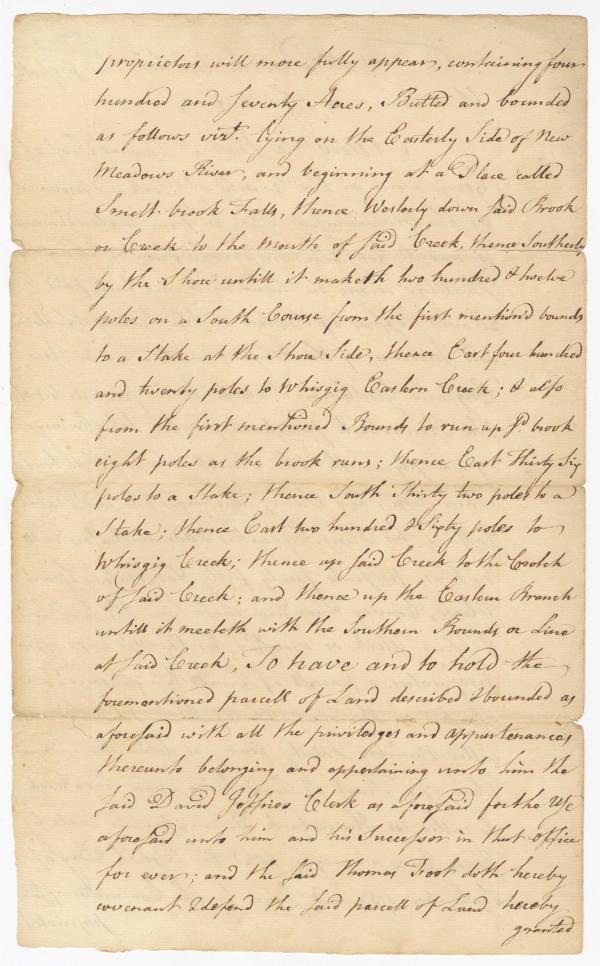 proprietors will more fully appear, containing four
hundred and seventy Acres, Butted and bounded
as follows vizt. lying on the Easterly Side of New
Meadows River, and beginning at a Place called
Smelt brook Falls, thence Westerly down said Brook
or Creek to the Mouth of said Creek. thence Southerly
by the Shore untill it maketh two hundred & twelve
poles on a South Course from the first mention'd bounds
to a Stake at the Shore Side, thence East four hundred
and twenty poles to Whisgig Eastern Creek; & also
from the first mentioned Bounds to run up sd. brook
eight poles as the brook runs; thence East Thirty Six
poles to a Stake; thence South Thirty two poles to a
Stake; thence East two hundred & Sixty poles to
Whisgig Creek; thence up said Creek to the Crotch
of said Creek; and thence up the Eastern Branch
untill it meeteth with the Southern Bounds or Line
at said Creek, To have and to hold the
forementioned parcell of Land described & bounded as
aforesaid with all the priviledges and appurtenances
thereunto belonging and appertaining unto him the
said David Jeffries Clerk as aforesaid for the Use
aforesaid unto him and his Successor in that office
for ever; and the said Thomas Foot doth hereby
covenant & defend the said parcell of Land hereby
granted